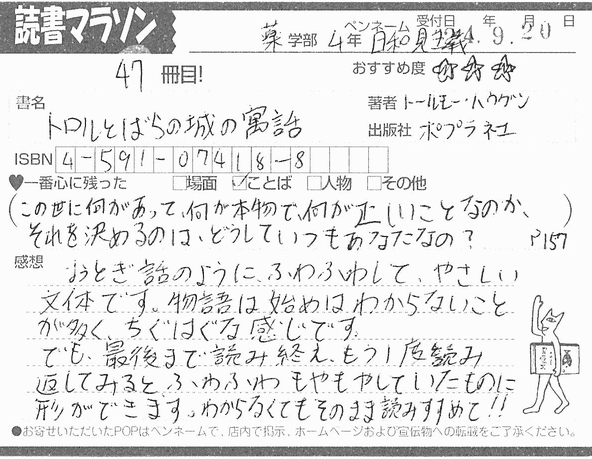 読書マラソン
薬学部 4年 ペンネーム 日和見主義 受付日 年 月 日 4.9.20
47 冊目! おすすめ度 ☆☆☆
書名 トロルとばらの城の寓話
著者 トールモー・ハウゲン
出版社 ポプラ社
ISBN 4-591-07418-8
♥一番心に残った □場面 ☑ことば □人物 □その他
(この世に何があって、何が本物で、何が正しいことなのか、
それを決めるのは、どうしていつもあなたなの?) P157
感想
おとぎ話のように、ふわふわして、やさしい
文体です。物語は始めはわからないこと
が多く、ちぐはぐな感じです。
でも、最後まで読み終え、もう1度読み
返してみると、ふわふわもやもやしていたものに
形ができます。わからなくてもそのまま読みすすめて!!
●お寄せいただいたPOPはペンネームで、店内で掲示、ホームページおよび宣伝物への転載をご了承ください。